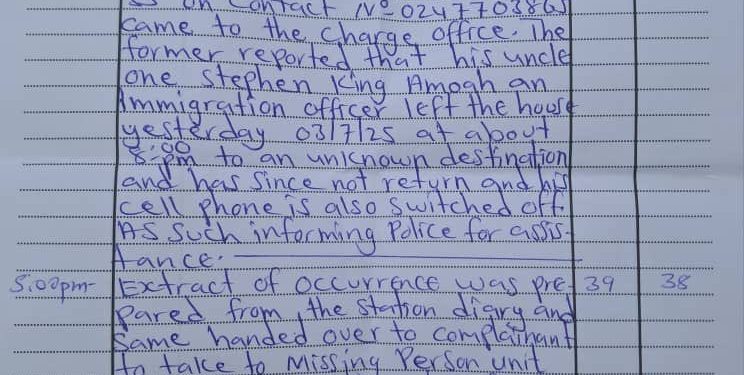 on contact Nº 0247703868
came to the charge office. The
former reported that his uncle
one Stephen King Ampah an
Immigration officer left the house
yesterday 03/7/25 at about
8:00
pm to an unknown destination
and has since not return and his
cell phone is also switched off.
As such informing Police for assis-
tance.
5:00pm- Extract of occurrence was pre- 39 38
pared from the station diary and
same handed over to complainant
to take to Missing Person unit